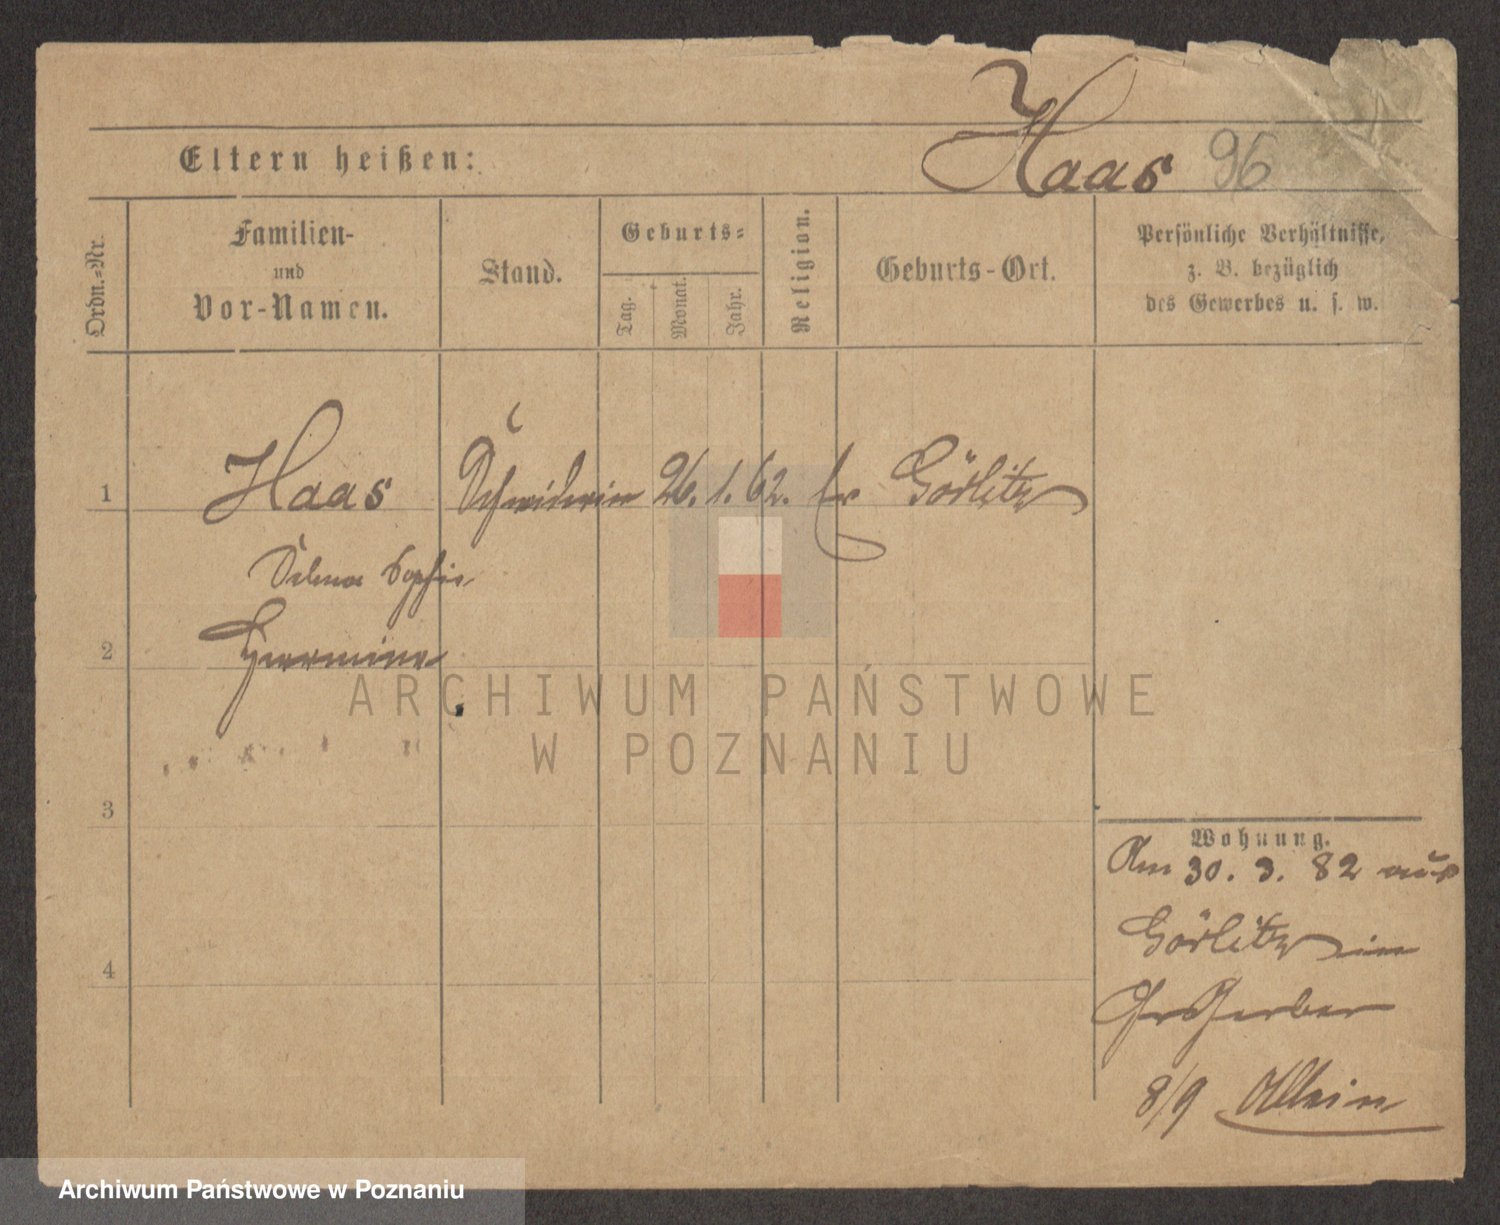 Haas 96
Eltern heißen:
Ordn.-Nr.
Familien-
und
Vor-Namen.
Stand.
Geburts-
Tag.
Monat.
Jahr.
Religion.
Geburts-Ort.
Persönliche Verhältnisse,
z. B. bezüglich
des Gewerbes u. s. w.
1 Haas Schneiderin 26. 1. 62. ev Görlitz
Selma Sophie
2 Hermine
ARCHIWUM PAŃSTWOWE
W POZNANIU
3
4
Wohnung.
Am 30. 3. 82 aus
Görlitz in
Gr Gerber
8/9 Allein
Archiwum Państwowe w Poznaniu